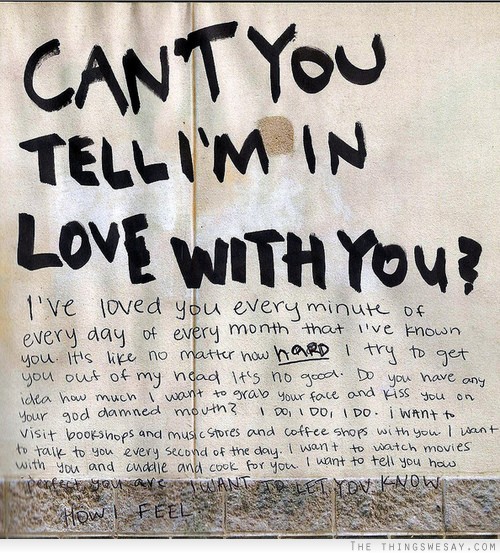 CAN'T YOU
TELL I'M IN
LOVE WITH YOU?
I've loved you every minute of
every day of every month that I've known
you. It's like no matter how HARD I try to get
you out of my head It's no good. Do you have any
idea how much I want to grab your face and kiss you on
your god damned mouth? I DO, I DO, I DO. I WANT to
visit bookshops and music stores and coffee shops with you I want
to talk to you every second of the day. I want to watch movies
with you and cuddle and cook for you I want to tell you how
perfect you are I WANT TO LET YOU KNOW
HOW I FEEL
THE THINGSWESAY.COM